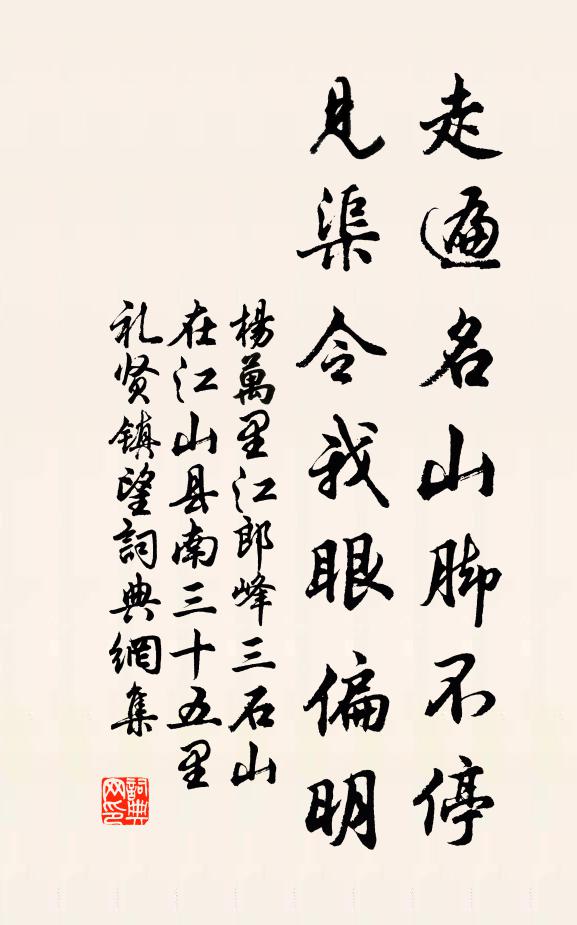 走遍名山脚不停
見渠令我眼偏明
楊萬里江郎峰三石山
在江山县南三十五里
礼贤镇望詞典網集
詞典网印